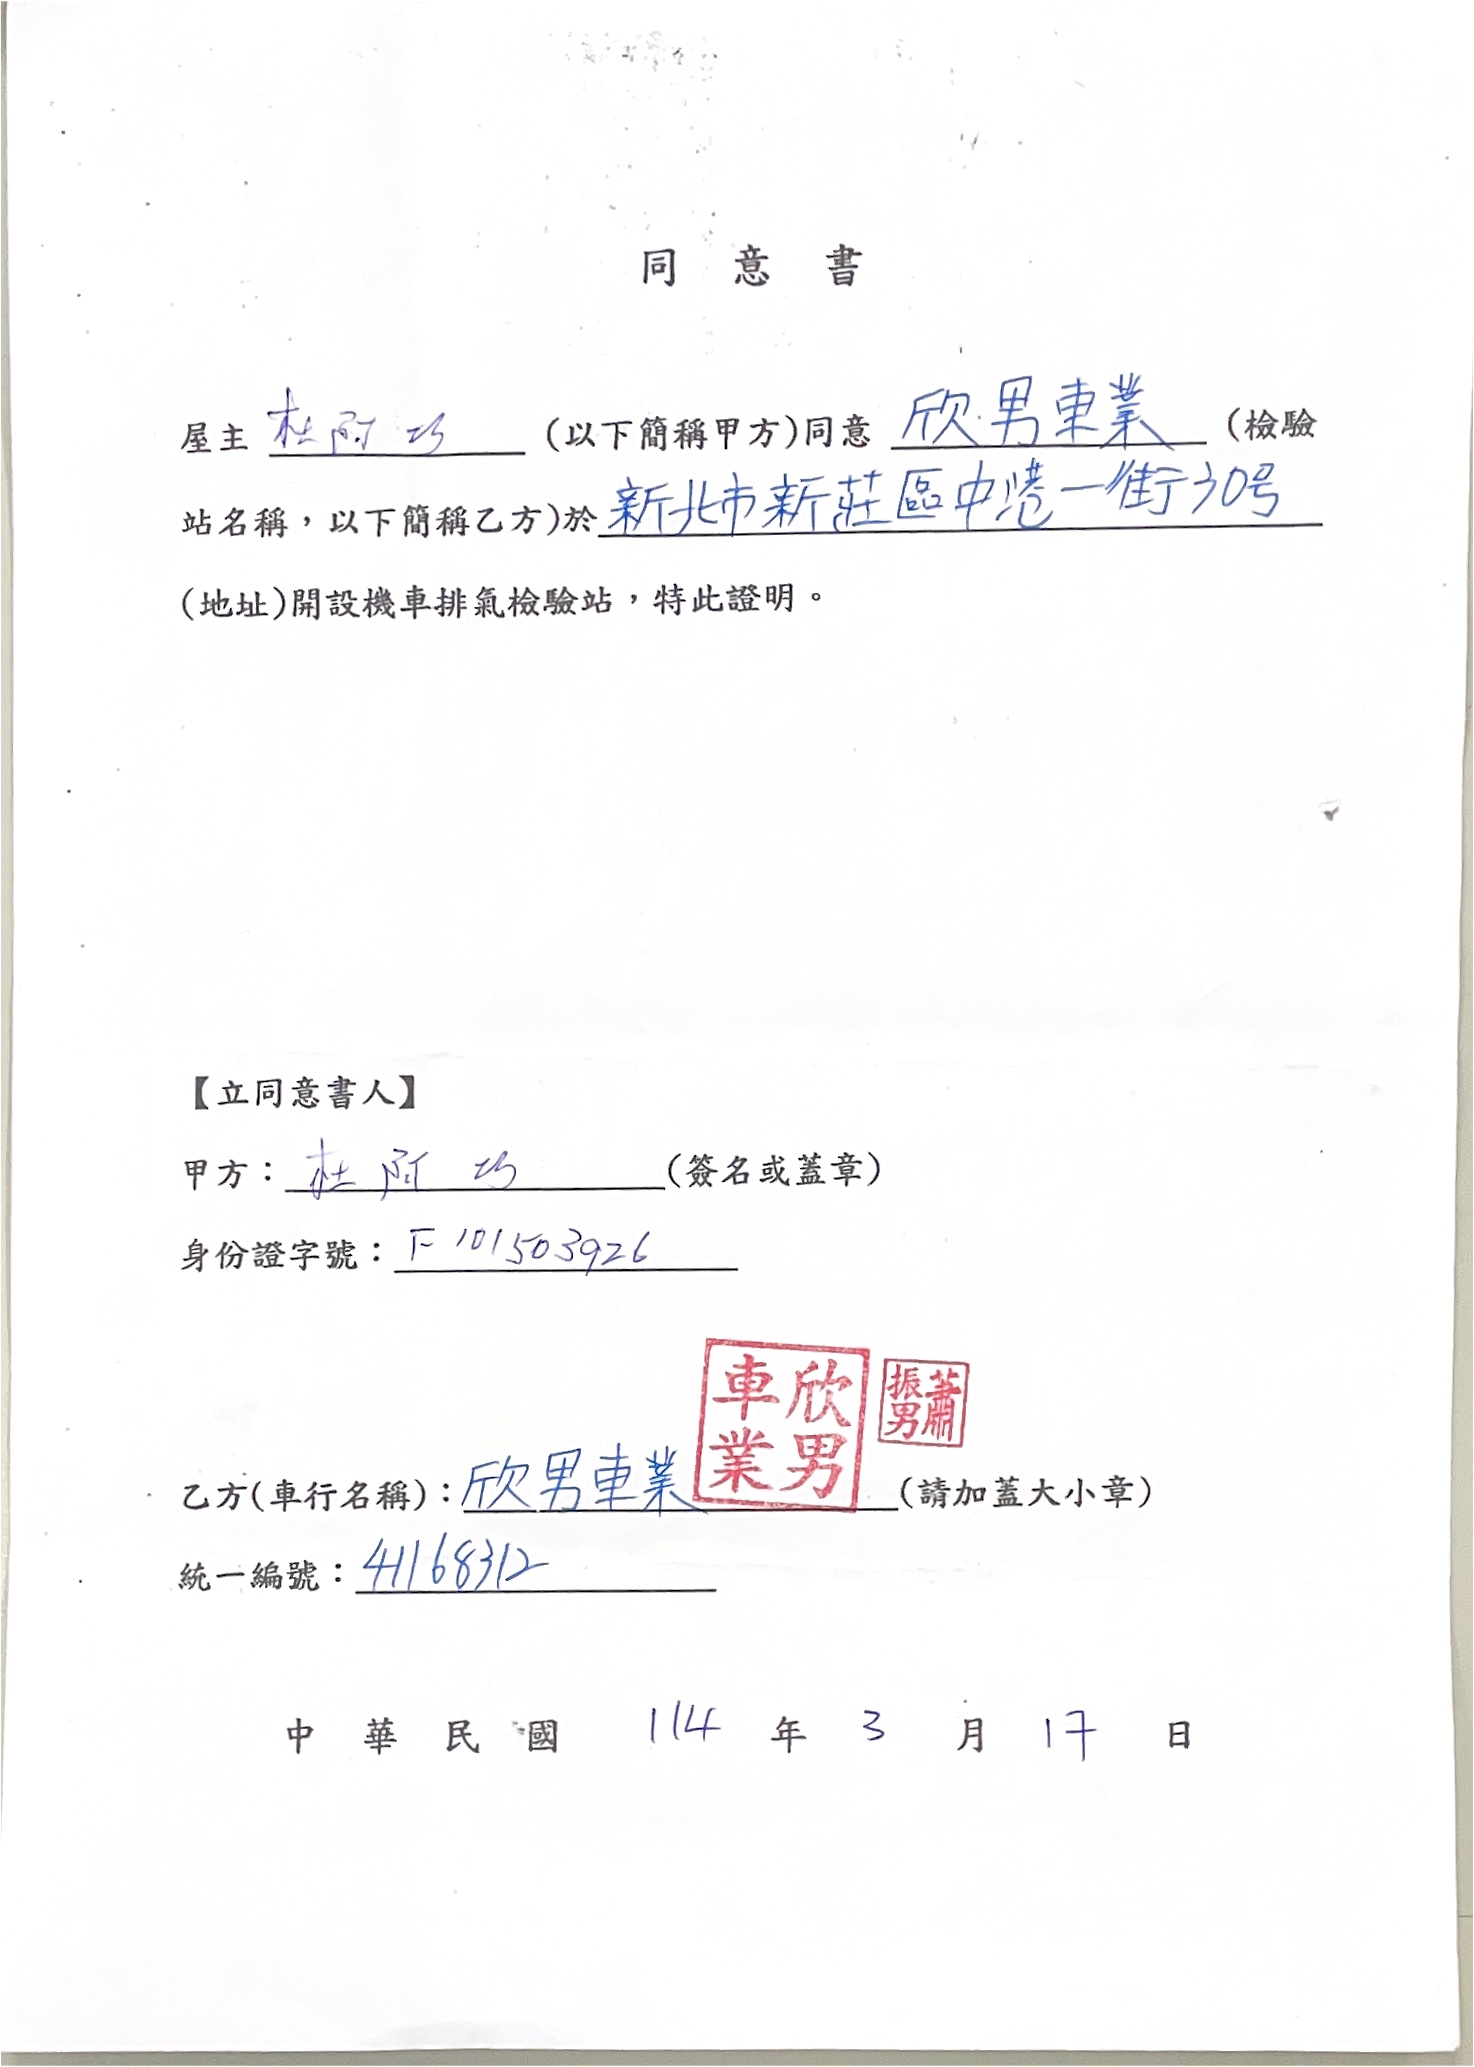 同意書
屋主 杜阿巧 (以下簡稱甲方)同意 欣男車業 (檢驗
站名稱，以下簡稱乙方)於新北市新莊區中港一街30号
(地址)開設機車排氣檢驗站，特此證明。
【立同意書人】
甲方：杜阿巧(簽名或蓋章)
身份證字號：F101503926
欣男車業
蕭振男
乙方(車行名稱)：欣男車業(請加蓋大小章)
統一編號：41168312
中華民國 114 年 3 月 17 日